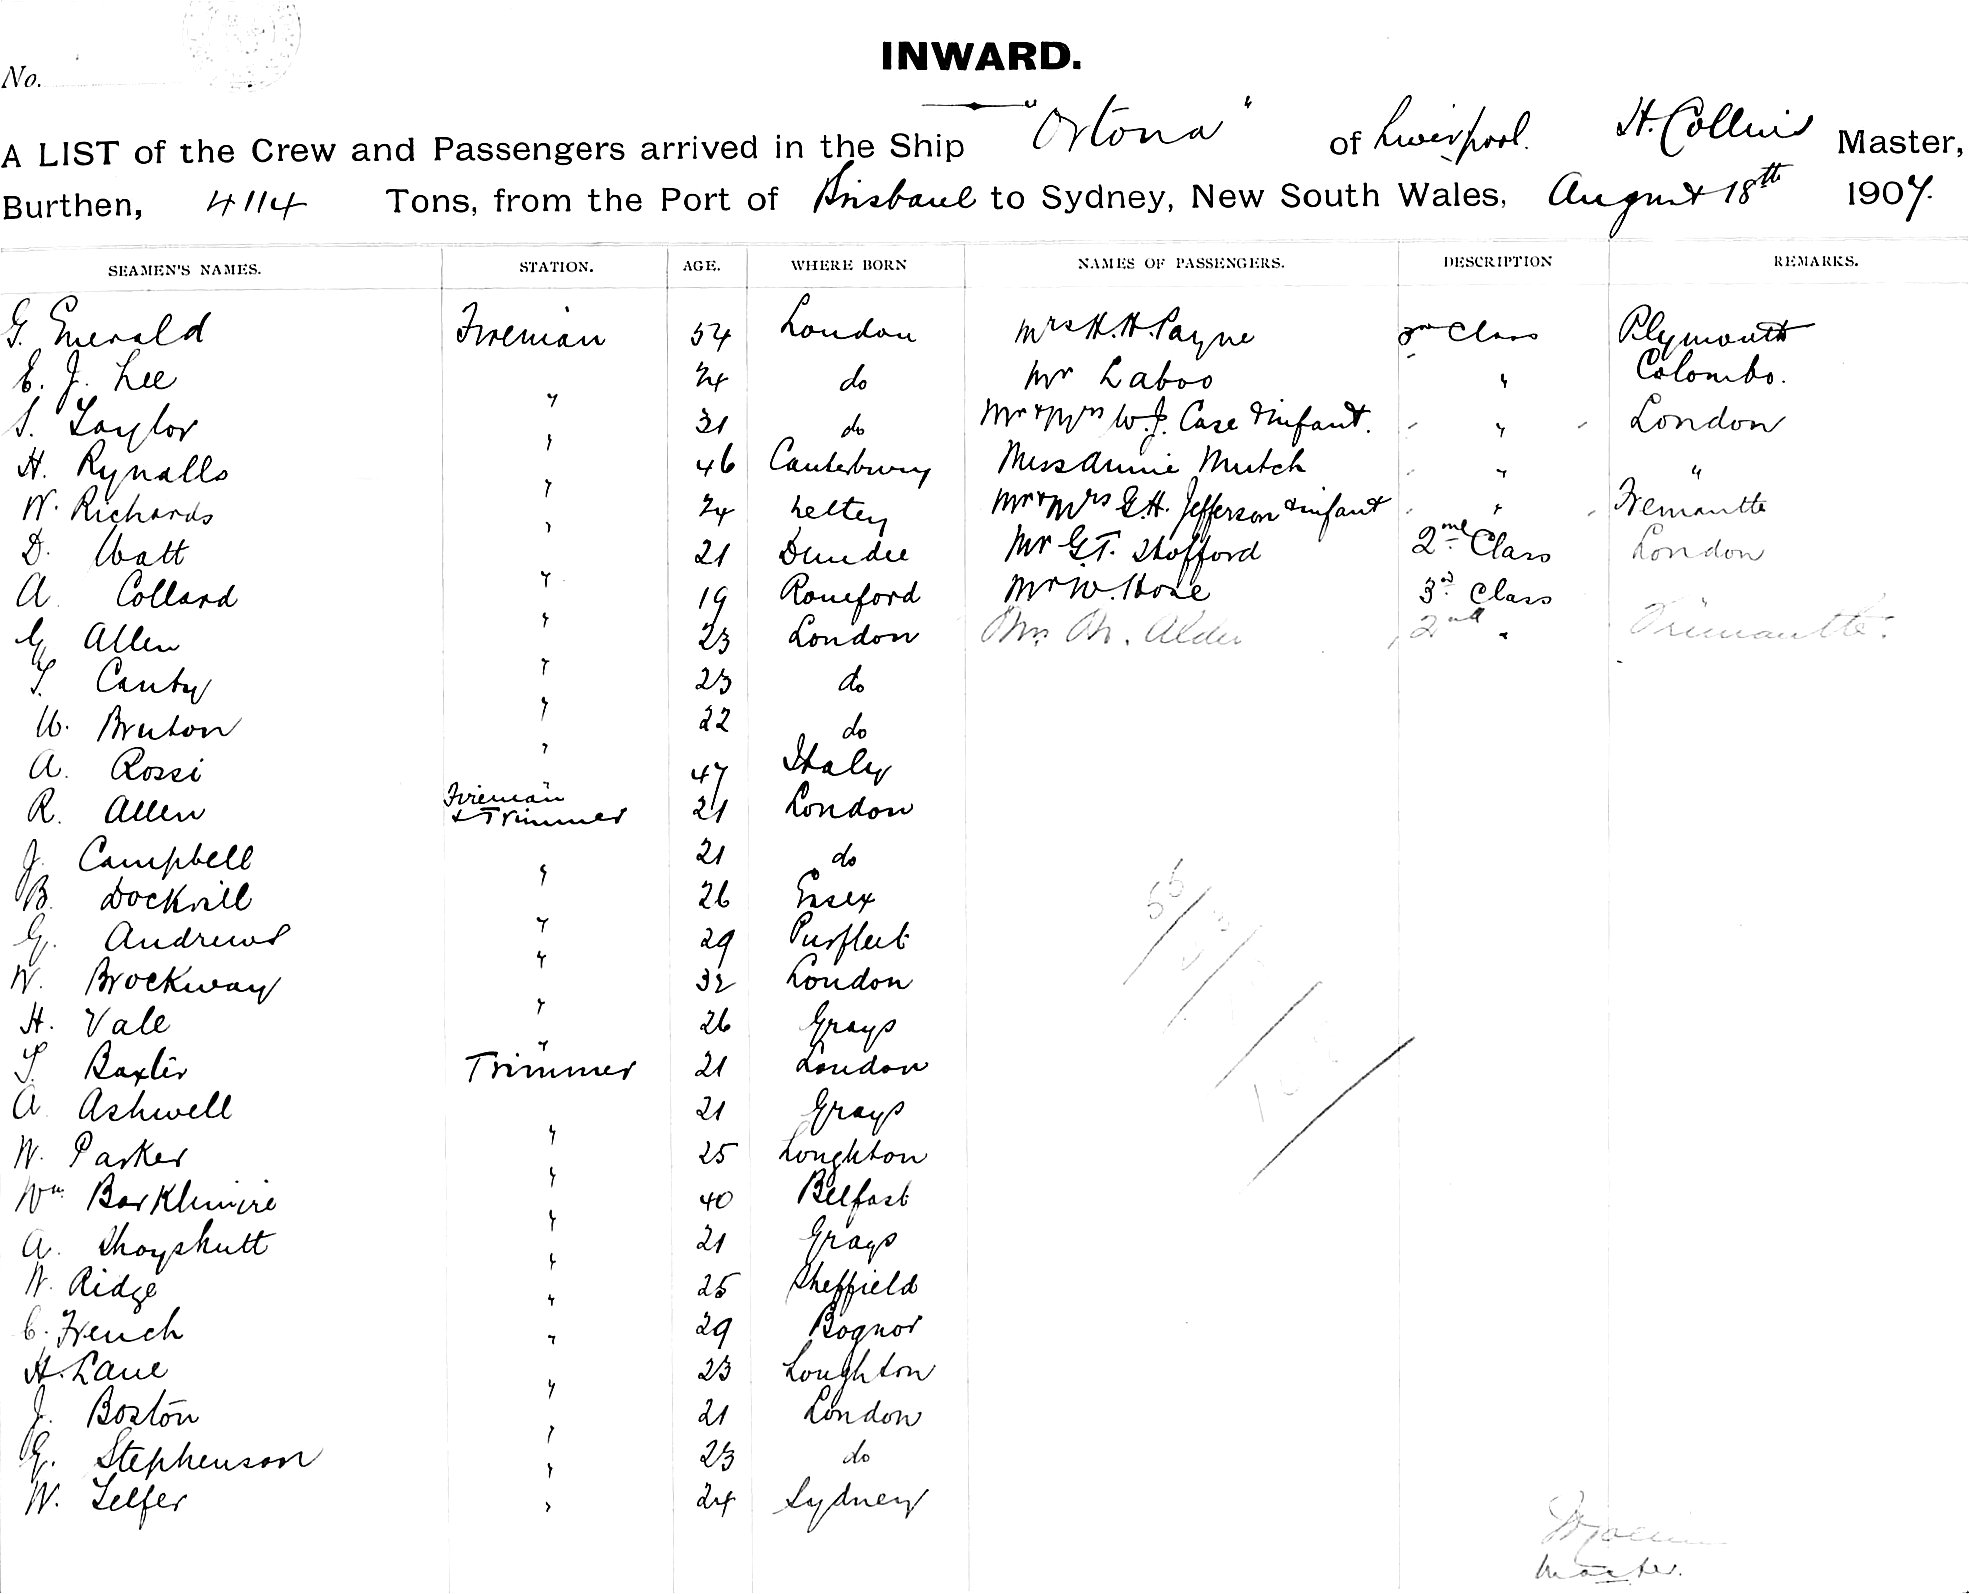 No.
INWARD.
A LIST of the Crew and Passengers arrived in the Ship "Ortona" of Liverpool. H. Collins Master,
Burthen, 4114 Tons, from the Port of Brisbane to Sydney, New South Wales, August 18th 1907.
SEAMEN'S NAMES. STATION. AGE. WHERE BORN NAMES OF PASSENGERS. DESCRIPTION REMARKS.
G. Emerald Fireman 54 London Mrs H. H. Payne 3rd Class Plymouth
E. J. Lee " 24 do Mr Laboo " Colombo.
S. Taylor " 31 do Mr & Mrs W. J. Case & Infant. " London
H. Rynalls " 46 Canterbury Miss Annie Mutch " "
W. Richards " 24 Mr & Mrs G. H. Jefferson & infant " Fremantle
D. Watt " 21 Dundee Mr G. T. Stofford 2nd Class London
A. Collard " 19 Romford Mr W. Hose 3rd Class
G. Allen " 23 London Mrs M. Alder 2nd " Fremantle.
T. Canty " 23 do
W. Bruton " 22 do
A. Rossi " 47 Italy
R. Allen Fireman & Trimmer 21 London
J. Campbell " 21 do
B. Dockrill " 26 Essex
G. Andrews " 29 Purfleet
W. Brockway " 32 London
H. Vale " 26 Grays
T. Baxter Trimmer 21 London
A. Ashwell " 21 Grays
W. Parker " 25 Loughton
Wm. Barklimire " 40 Belfast
A. Shoyskutt " 21 Grays
W. Ridge " 25 Sheffield
C. French " 29 Bognor
H. Lane " 23 Loughton
J. Boston " 21 London
G. Stephenson " 23 do
W. Telfer " 24 Sydney
Master.